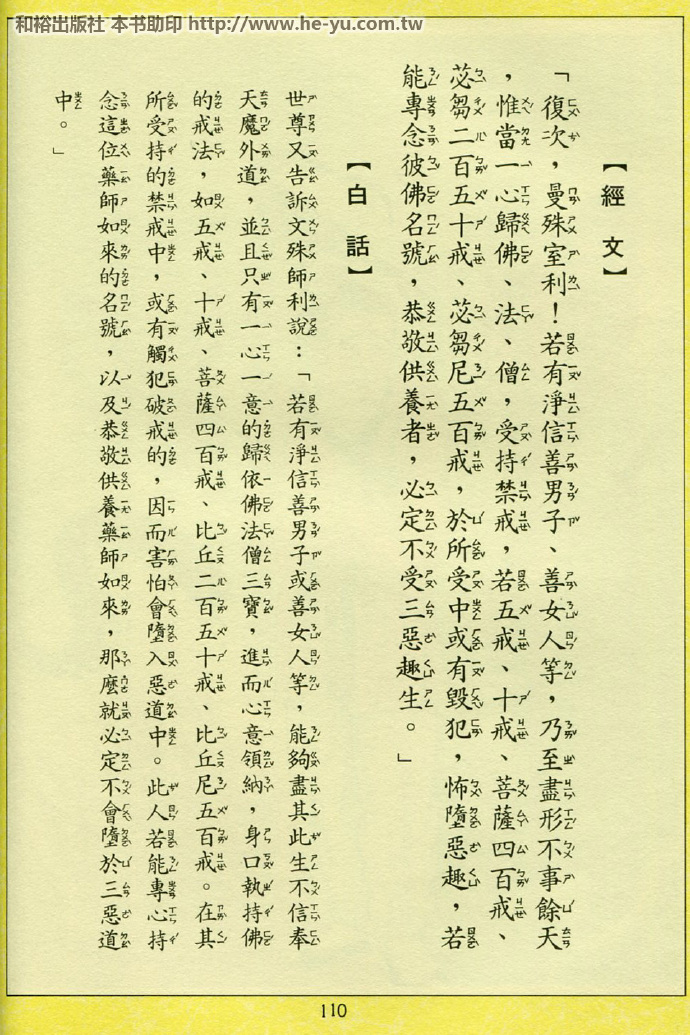 和裕出版社 本书助印 http://www.he-yu.com.tw
【經文】
「復次，曼殊室利！若有淨信善男子、善女人等，乃至盡形不事餘天
，惟當一心歸佛、法、僧，受持禁戒，若五戒、十戒、菩薩四百戒、
苾芻二百五十戒、苾芻尼五百戒，於所受中或有毀犯，怖墮惡趣，若
能專念彼佛名號，恭敬供養者，必定不受三惡趣生。」
【白話】
世尊又告訴文殊師利說：「若有淨信善男子或善女人等，能夠盡其此生不信奉
天魔外道，並且只有一心一意的歸依佛法僧三寶，進而心意領納，身口執持佛
的戒法，如五戒、十戒、菩薩四百戒、比丘二百五十戒、比丘尼五百戒。在其
所受持的禁戒中，或有觸犯破戒的，因而害怕會墮入惡道中。此人若能專心持
念這位藥師如來的名號，以及恭敬供養藥師如來，那麼就必定不會墮於三惡道
中。」
110